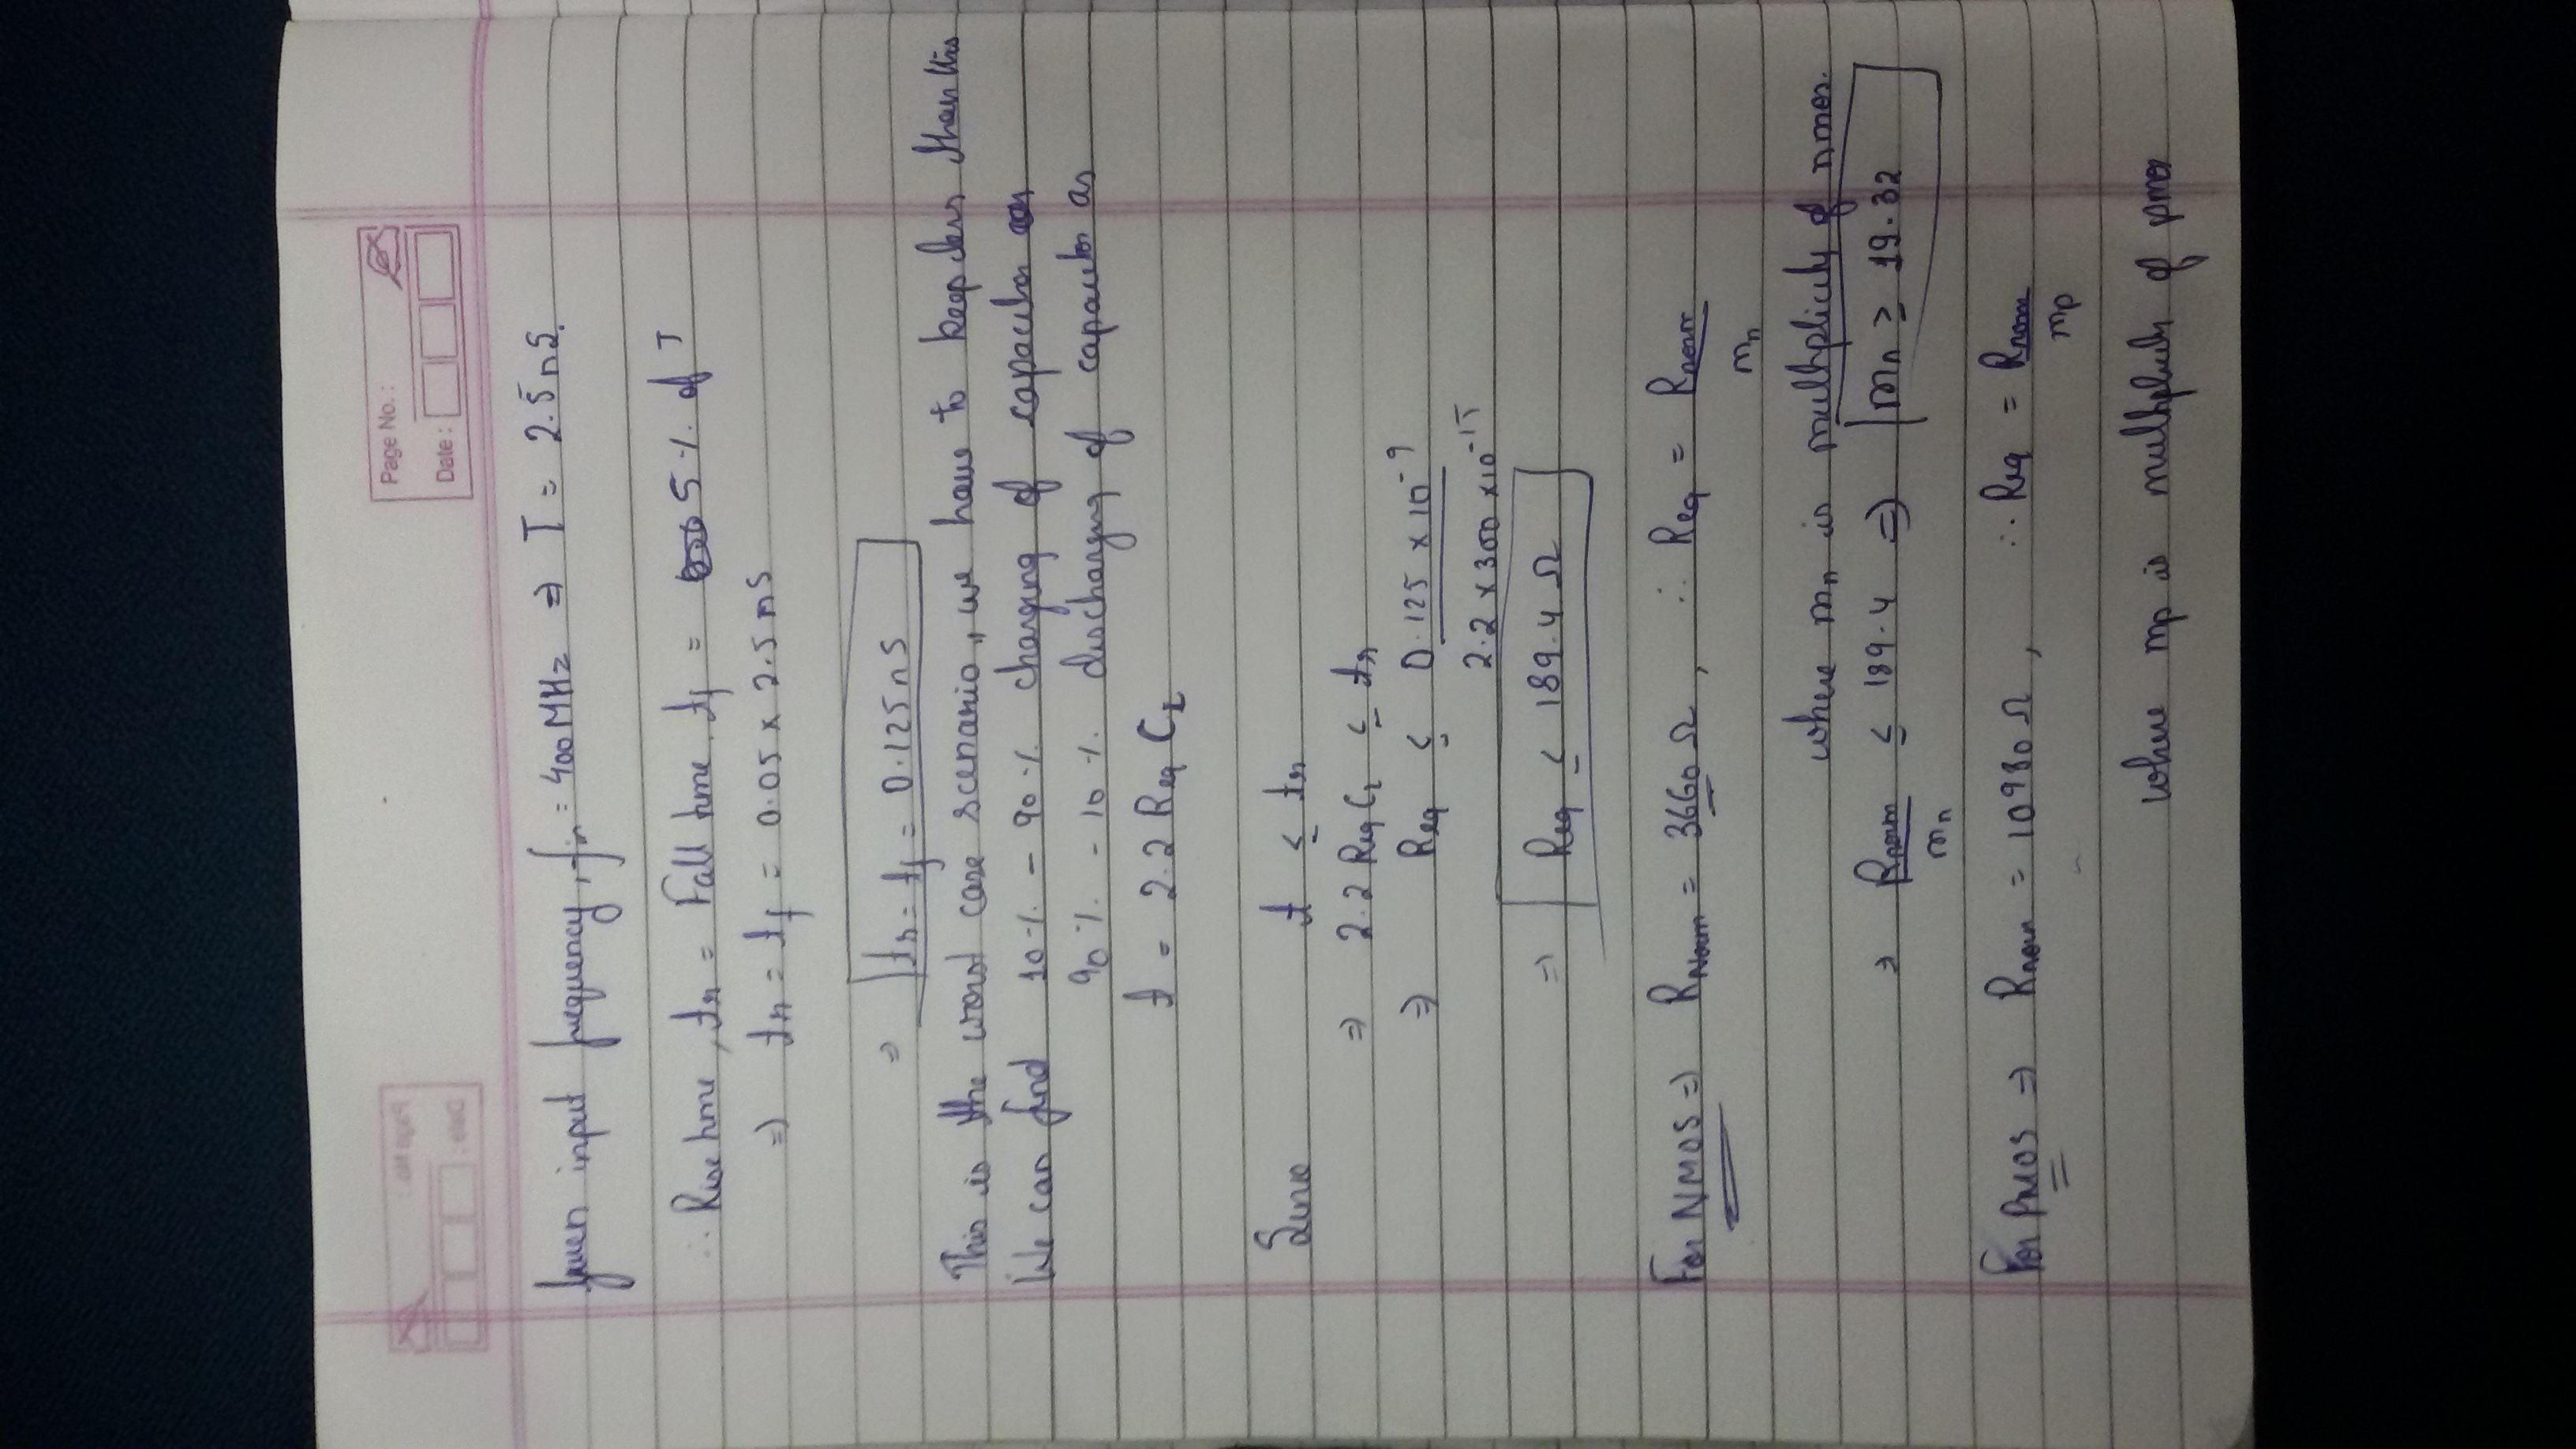 Page No. :
Date :
Given input frequency, fin = 400 MHz ⇒ T = 2.5 nS.
∴ Rise time, tr = Fall time. tf = 5 % of T
⇒ tr = tf = 0.05 × 2.5 nS
⇒ tr = tf = 0.125 nS
This is the worst case scenario, we have to keep less than this
We can find 10 % - 90 % charging of capacitor or
90 % - 10 % discharging of capacitor as
t = 2.2 Req CL
Since t ≤ tr
⇒ 2.2 Req CL ≤ tr
⇒ Req ≤ 0.125 × 10^-9
2.2 × 300 × 10^-15
⇒ Req ≤ 189.4 Ω
For NMOS ⇒ RNom = 3660 Ω, ∴ Req = Rnom
mn
where mn is multiplicity of nmos.
⇒ Rnom ≤ 189.4 ⇒ mn ≥ 19.32
mn
For PMOS ⇒ Rnom = 10980 Ω, ∴ Req = Rnom
mp
where mp is multiplicity of pmos